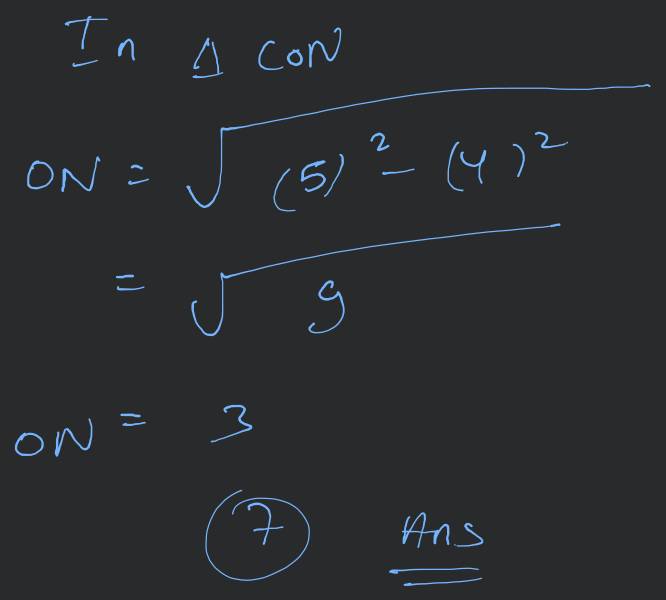 In Δ CON
ON = √(5)² - (4)²
= √9
ON = 3
7 Ans